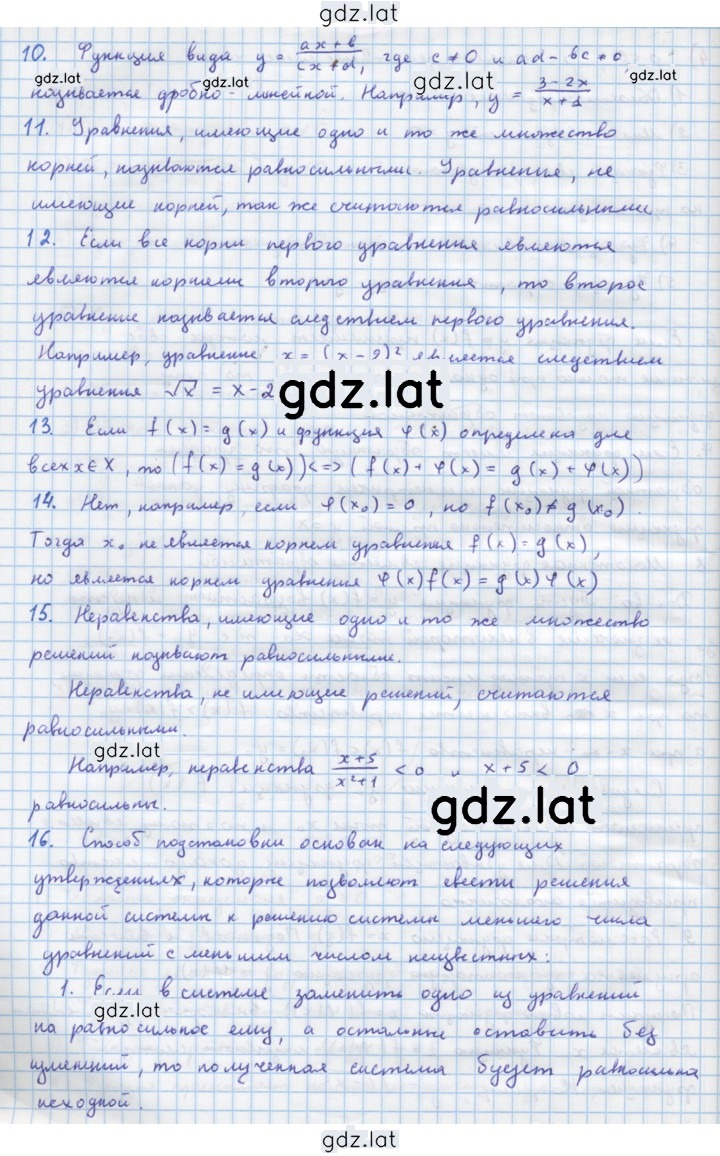 gdz.lat
10. Функция вида y = (ax+b)/(cx+d), где c ≠ 0 и ad - bc ≠ 0,
gdz.lat gdz.lat gdz.lat
называется дробно-линейной. Например, y = (3-2x)/(x+1)
11. Уравнения, имеющие одно и то же множество
корней, называются равносильными. Уравнения, не
имеющие корней, так же считаются равносильными
12. Если все корни первого уравнения являются
являются корнями второго уравнения, то второе
уравнение называется следствием первого уравнения.
Например, уравнение x = (x-2)² является следствием
уравнения √x = x-2
gdz.lat
13. Если f(x) = g(x) и функция φ(x) определена для
всех x∈X, то (f(x) = g(x)) <=> (f(x) + φ(x) = g(x) + φ(x))
14. Нет, например, если φ(x₀) = 0, но f(x₀) ≠ g(x₀).
Тогда x₀ не является корнем уравнения f(x) = g(x),
но является корнем уравнения φ(x)f(x) = g(x)φ(x)
15. Неравенства, имеющие одно и то же множество
решений называют равносильными.
Неравенства, не имеющие решений, считаются
равносильными.
gdz.lat
Например, неравенства (x+5)/(x²+1) < 0 и x+5 < 0
равносильны.
gdz.lat
16. Способ подстановки основан на следующих
утверждениях, которые позволяют свести решения
данной системы к решению системы меньшего числа
уравнений с меньшим числом неизвестных:
1. Если в системе заменить одно из уравнений
gdz.lat gdz.lat
на равносильное ему, а остальные оставить без
изменений, то полученная система будет равносильна
исходной.
gdz.lat